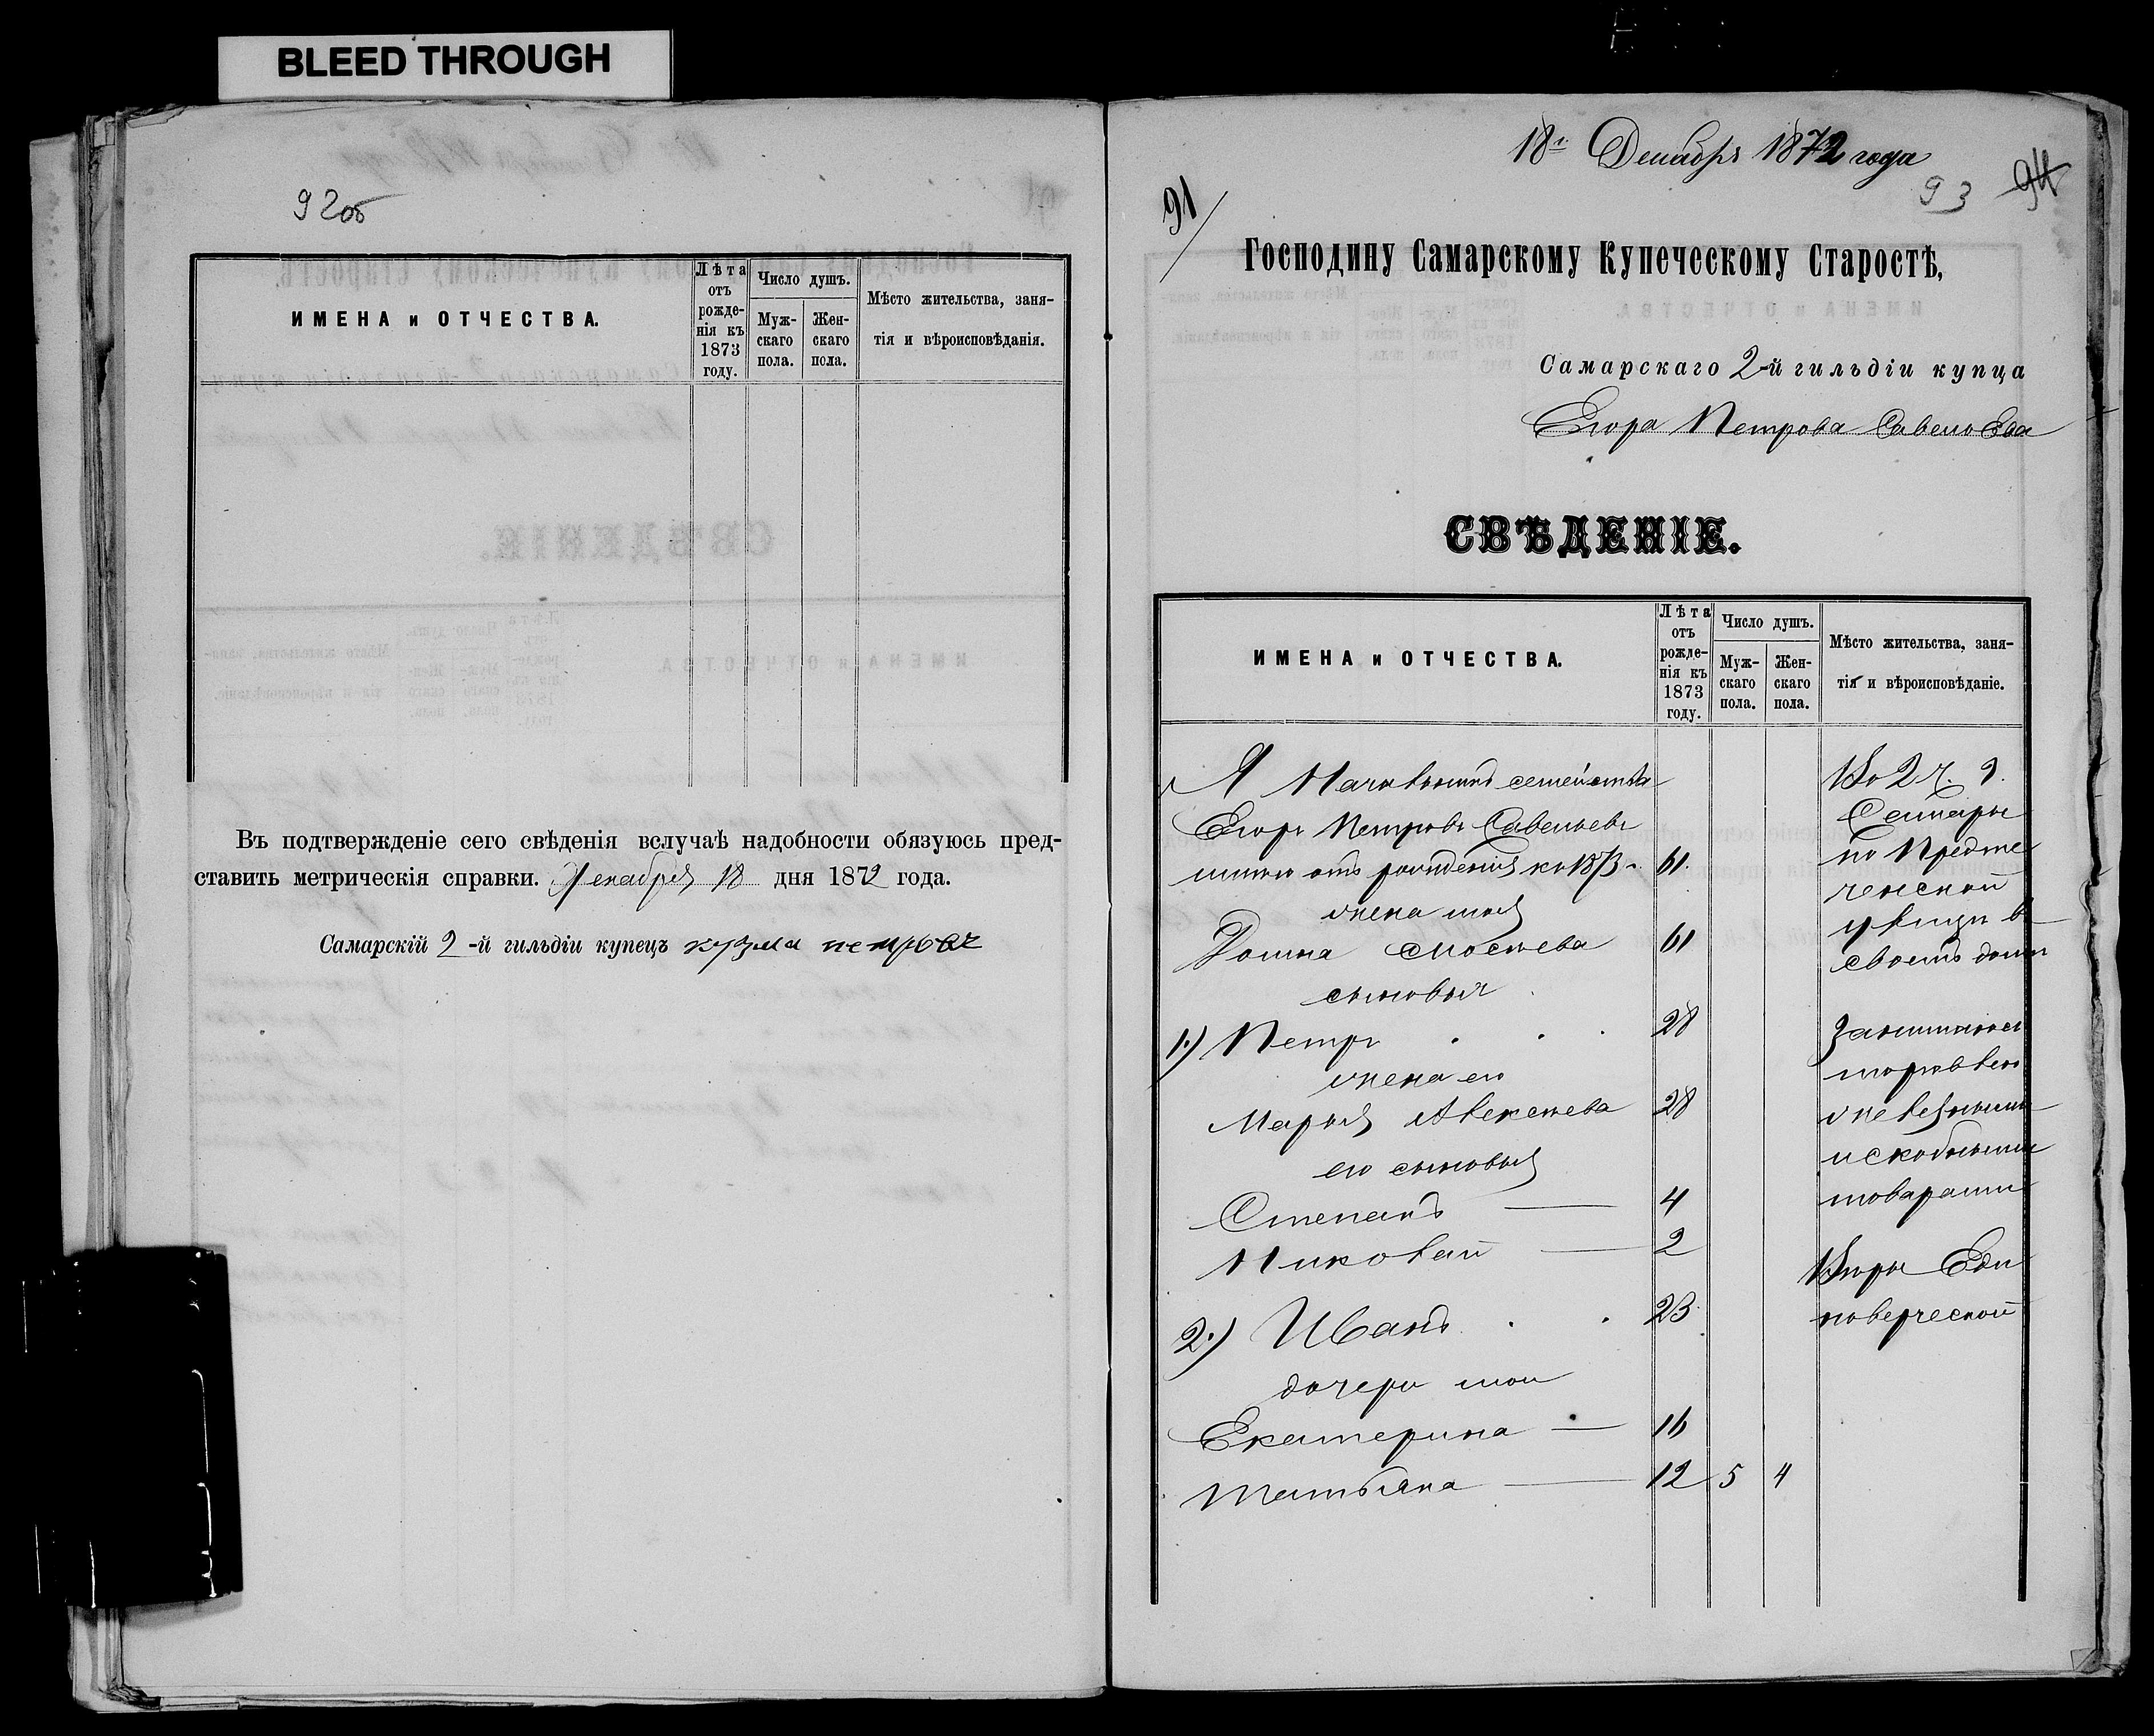 BLEED THROUGH
92об
ИМЕНА и ОТЧЕСТВА.
Лѣта
отъ
рожде-
нія къ
1873
году.
Число душъ.
Муж-
скаго
пола.
Жен-
скаго
пола.
Мѣсто жительства, заня-
тія и вѣроисповѣданія.
Въ подтвержденіе сего свѣденія вслучаѣ надобности обязуюсь пред-
ставить метрическія справки. Декабря 18 дня 1872 года.
Самарскій 2-й гильдіи купецъ кузма петровъ
18 Декабря 1872 года
91
93 94
Господину Самарскому Купеческому Старостѣ,
Самарскаго 2-й гильдіи купца
Егора Петрова Савельева
СВѢДЕНІЕ.
ИМЕНА и ОТЧЕСТВА.
Лѣта
отъ
рожде-
нія къ
1873
году.
Число душъ.
Муж-
скаго
пола.
Жен-
скаго
пола.
Мѣсто жительства, заня-
тія и вѣроисповѣданіе.
Я Начальникъ семейства
Егоръ Петровъ Савельевъ
отъ рожденія къ 1873 61
жена моя
Домна 61
сыновья
1.) Петръ 28
жена его
Марья Алексеева 28
его сыновья
Степанъ 4
Николай 2
2.) Иванъ 23
дочери мои
Екатерина 16
Татьяна 12 5 4
Во 2 ч. г.
Самары
по Предте
ченской
улицы в
своемъ доме
Занимаюсь
торговлею
железными
и скобяными
товарами
Веры Еди
новерческой